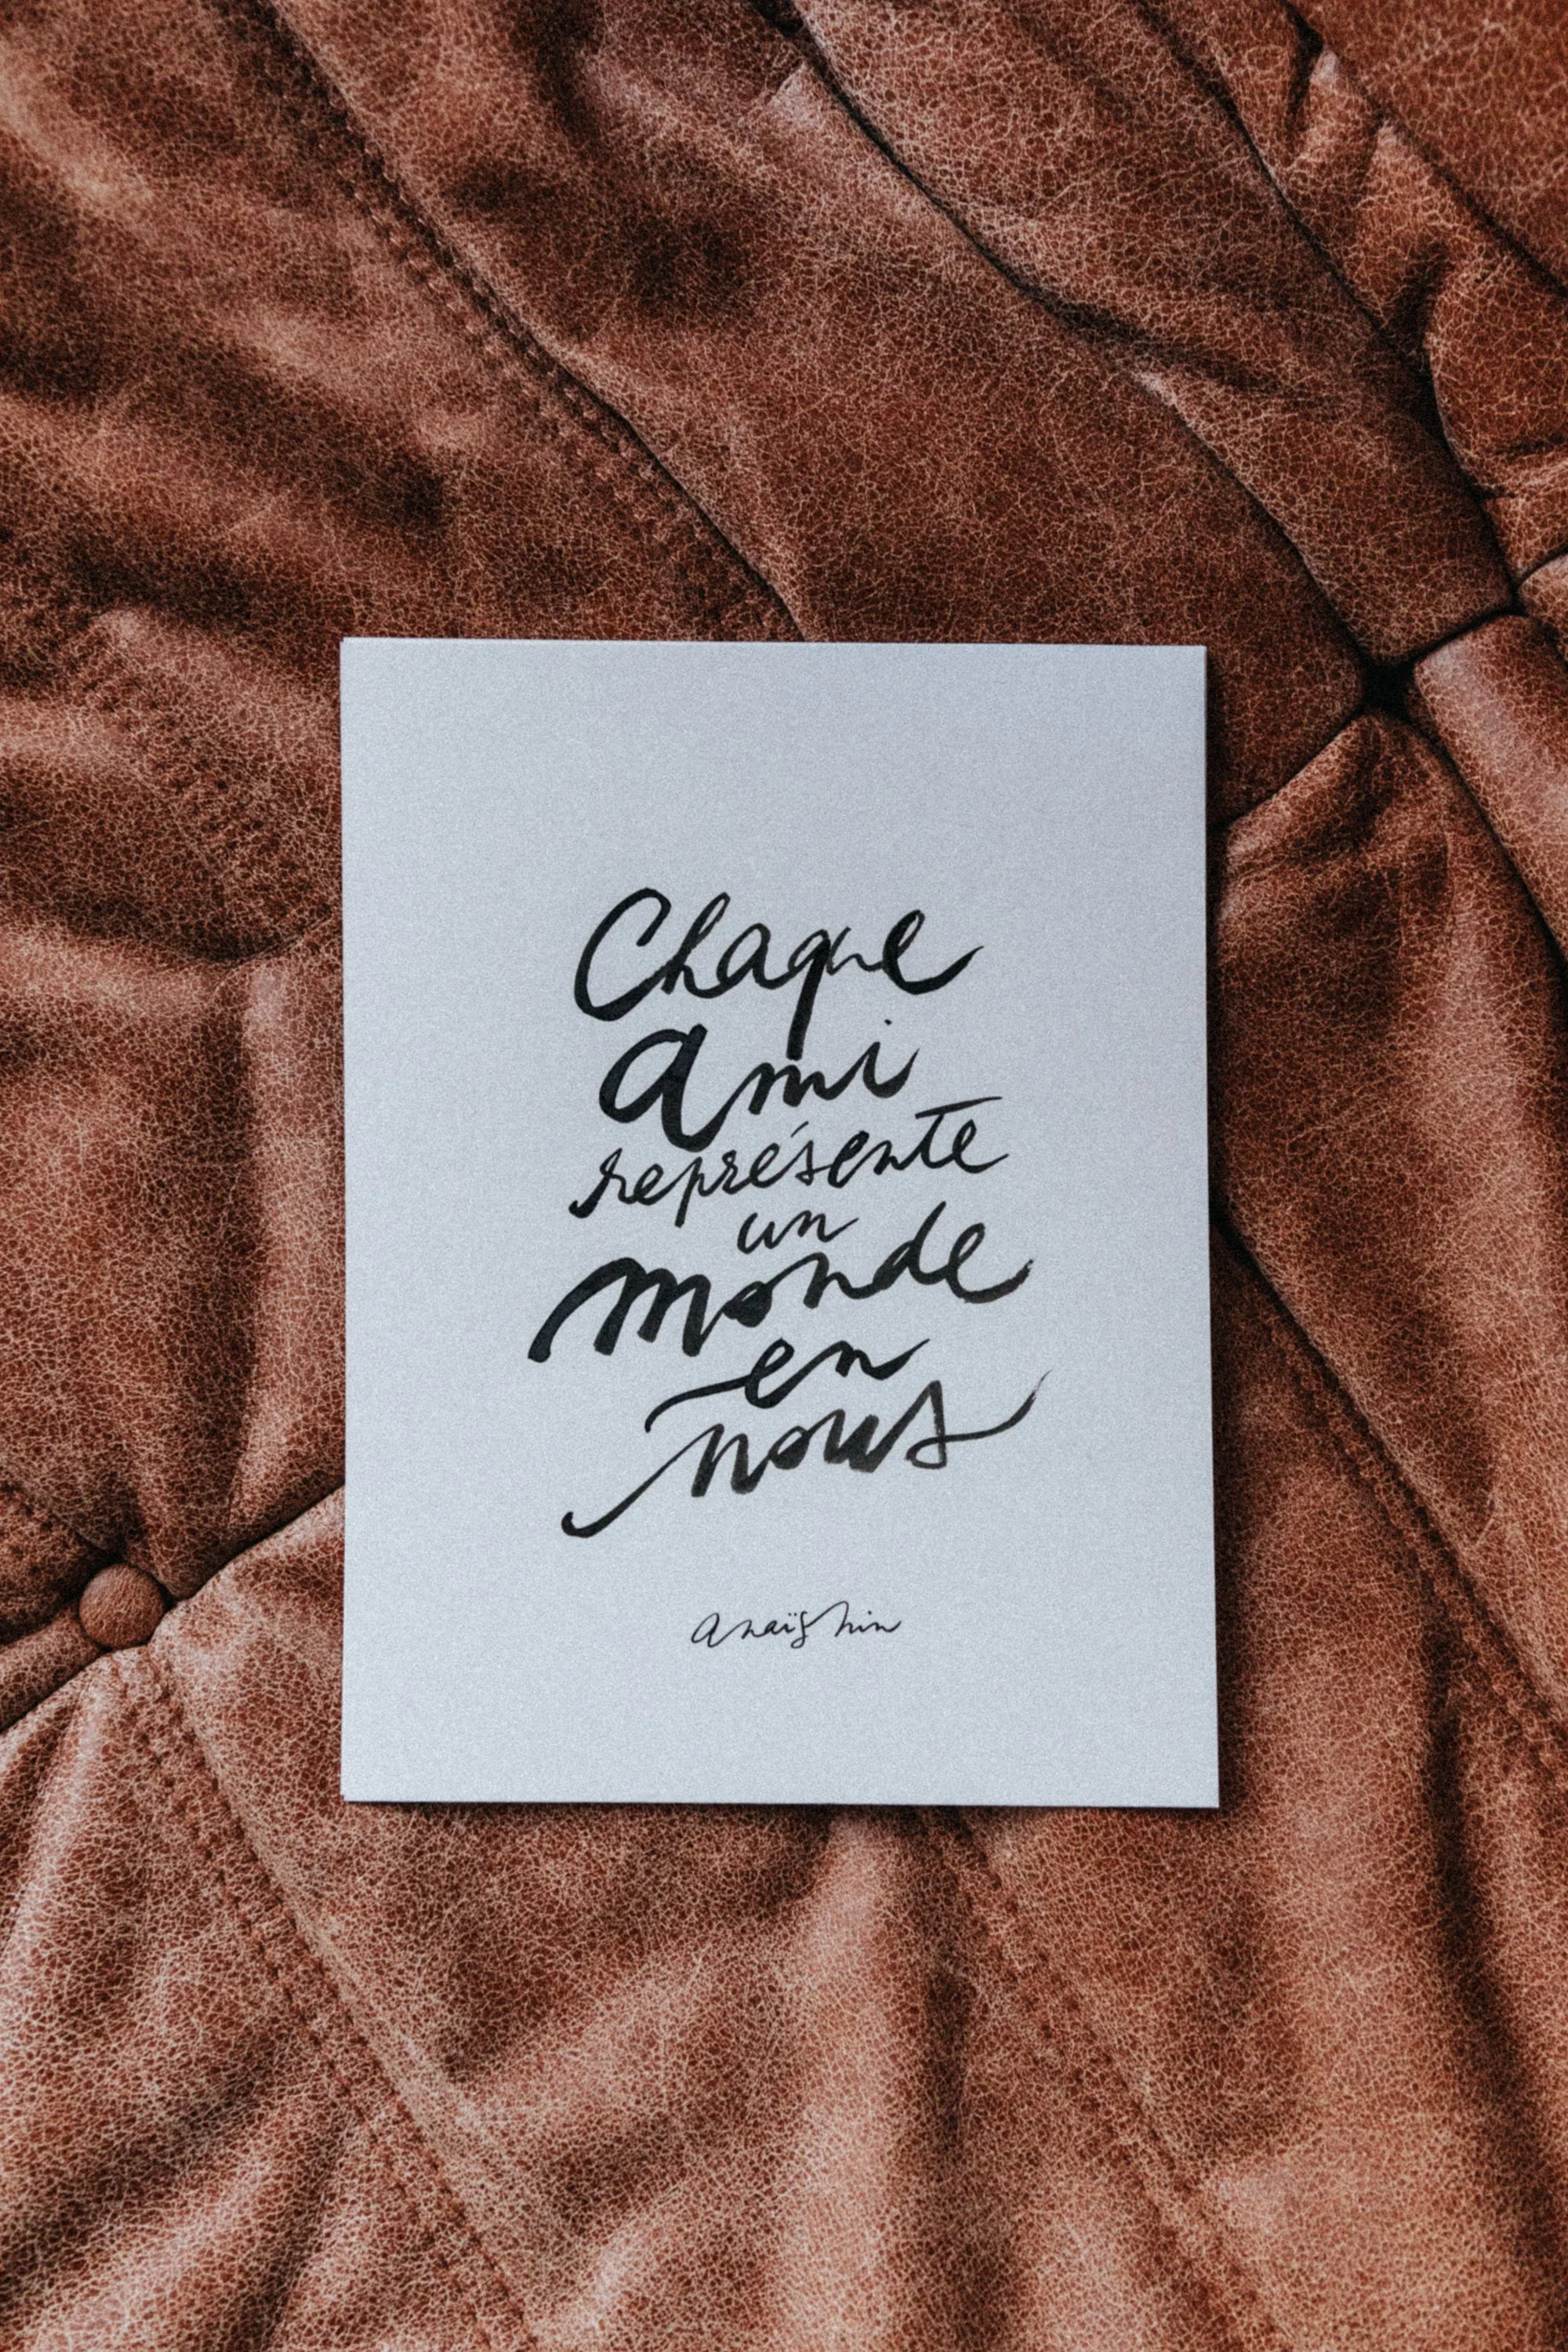 Chaque
ami
représente
un
monde
en
nous
anaïs nin